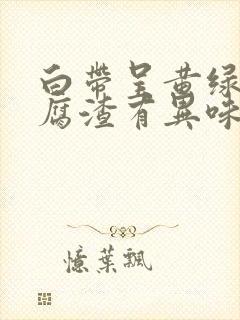 白帶呈黄绿
腐渣有異味
憶葉飄